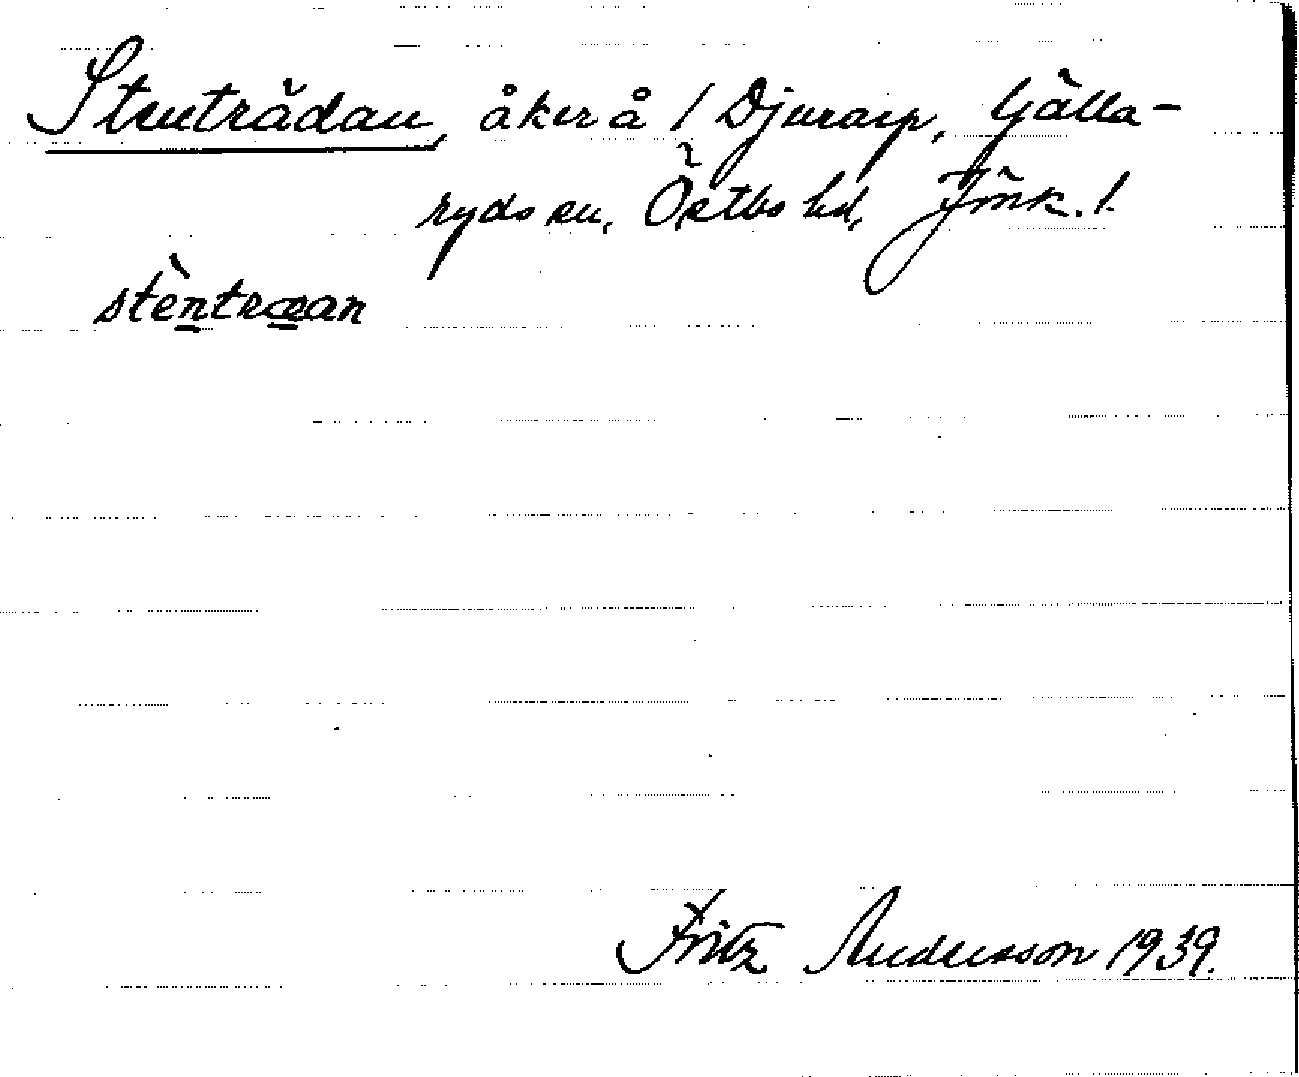 Stenträdan, åker å 1 Djurarp, Gälla-
ryds sn, Östbo hd, Jönk. l.
stèntræan
Fritz Andersson 1939.